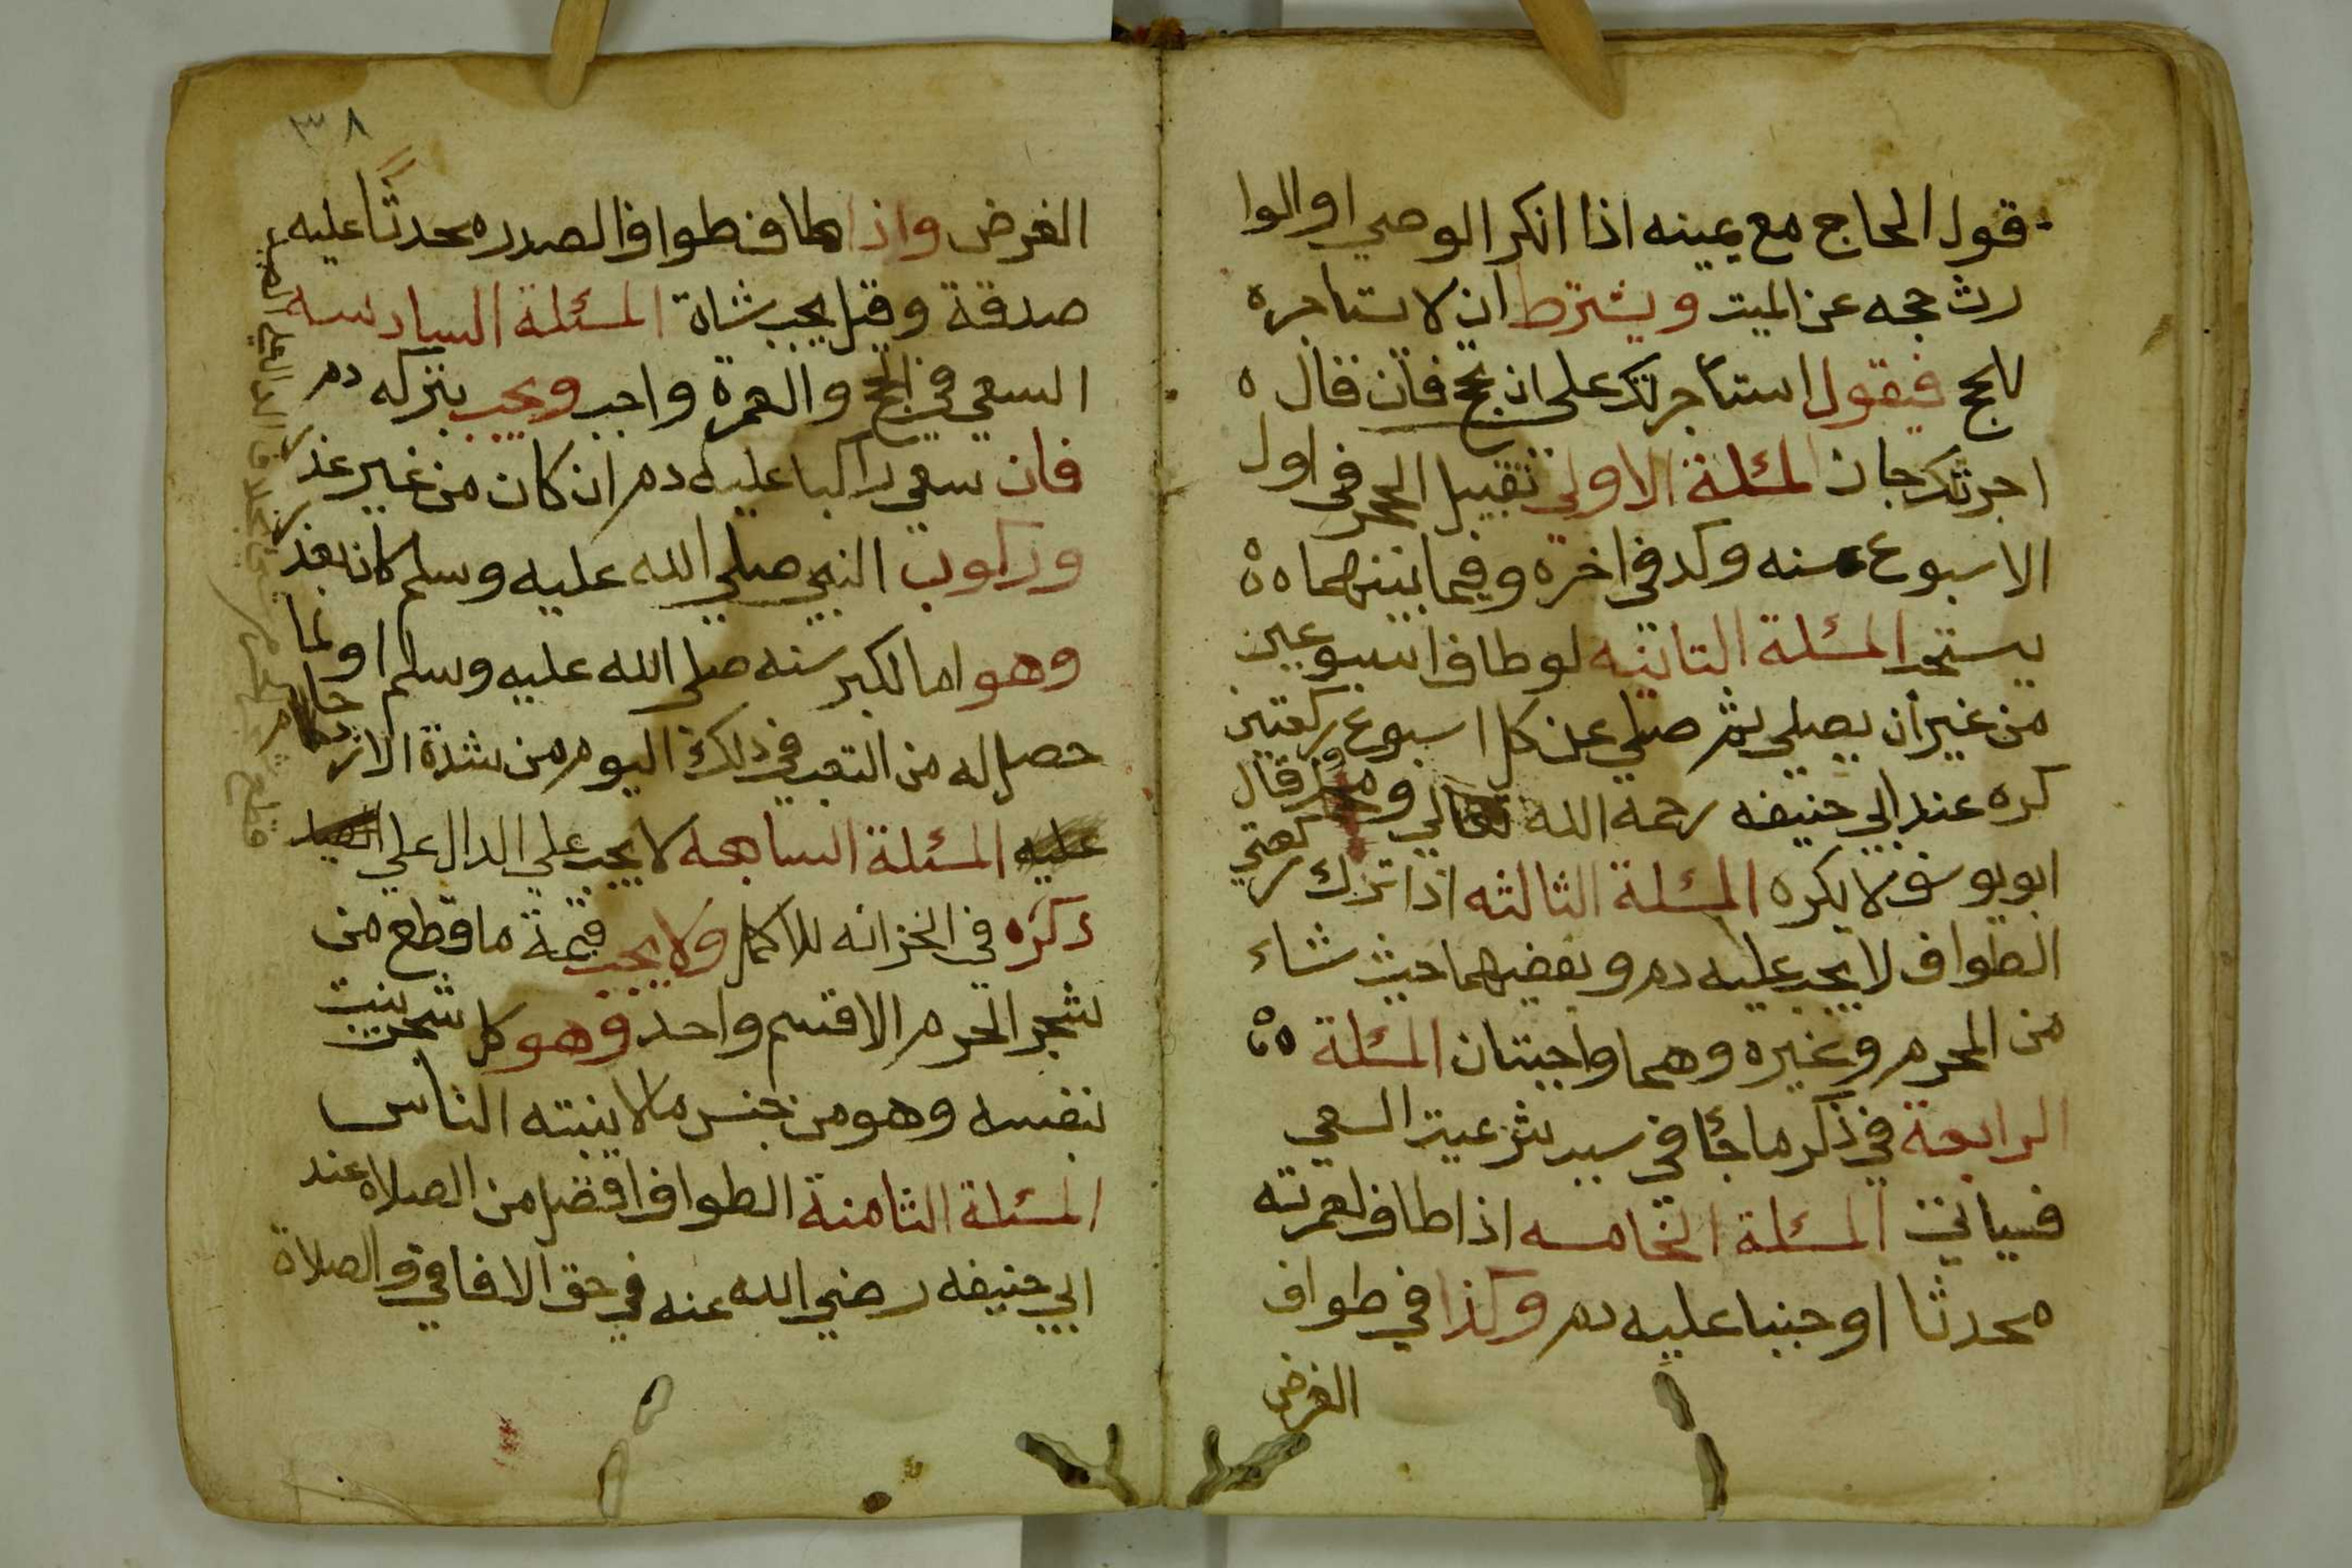 قول الحاج مع يمينه اذا انكر الوصي او الوا
رث حجه عن الميت ويشترط ان لا يستاجره
لا يحج فيقول استأجرتك على ان تحج فان قال ه
اجرتك جاز المسئلة الاولى تقبيل الحجر في اول
الاسبوع سنه وكد في اخره وفيما بينهما ه ه
يستحب المسئلة الثانيه لو طاف اسبوعين
من غير أن يصلي ثم صلي عن كل اسبوع ركعتين
كره عند ابي حنيفه رحمه الله تعالي و قال
ابو يوسف لا يكره المسئلة الثالثه اذا ترك ركعتي
الطواف لا يجب عليه دم ويقضيهما حيث شاء
من المحرم وغيره وهما واجبتان المسئلة ه ه
الرابعة في ذكر ما جأ في سبد شرعية السعي
فسياتي المسئلة الخامسه اذا طاف لعمرته
محدثا او جنبا عليه دم وكذا في طواف
الفرض
٣٨
الفرض واذا طاف طواف الصدر محدثا عليه
صدقة وقيل يجب شاة المسئلة السادسه
السعي في الحج والعمرة واجب ويجب بتركه دم
فان سعي راكبا عليه دم ان كان من غير عذر
وركوب النبي صلي الله عليه وسلم كان بعذر
وهو اما لكبر سنه صلي الله عليه وسلم او لما
حصل له من التعب في ذلك اليوم من شدة الازدحام
عليه المسئلة السابعه لا يجب علي الدال علي الصيد
ذكره في الخزانه للاكمل ولا يجب قيمة ما قطع من
شجر الحرم الا قسم واحد وهو كل شجر ينبت
بنفسه وهو من جنس ما لا ينبته الناس
المسئلة الثامنة الطواف افضل من الصلاه عند
ابي حنيفه رضي الله عنه في حق الافاقي والصلاة